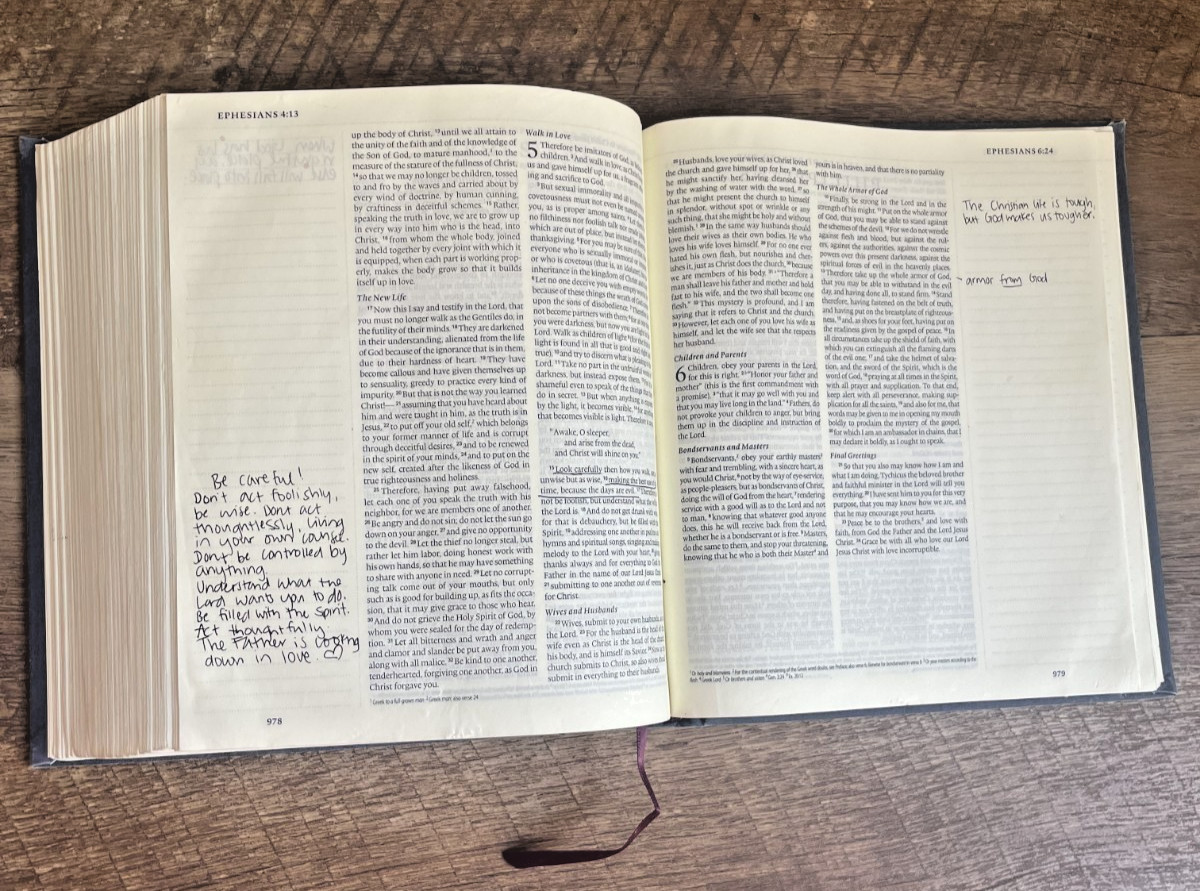 EPHESIANS 4:13
Be careful!
Don't act foolishly,
be wise. Dont act
thoughtlessly, living
in your own cause.
Don't be controlled by
anything.
Understand what the
Lord wants you to do.
Be filled with the Spirit.
Act thoughtfully.
The Father is
down in love.
978
up the body of Christ, 13 until we all attain to
the unity of the faith and of the knowledge of
the Son of God, to mature manhood, 1 to the
measure of the stature of the fullness of Christ,
14 so that we may no longer be children, tossed
to and fro by the waves and carried about by
every wind of doctrine, by human cunning,
by craftiness in deceitful schemes. 15 Rather,
speaking the truth in love, we are to grow up
in every way into him who is the head, into
Christ, 16 from whom the whole body, joined
and held together by every joint with which it
is equipped, when each part is working prop-
erly, makes the body grow so that it builds
itself up in love.
The New Life
17 Now this I say and testify in the Lord, that
you must no longer walk as the Gentiles do, in
the futility of their minds. 18 They are darkened
in their understanding, alienated from the life
of God because of the ignorance that is in them,
due to their hardness of heart. 19 They have
become callous and have given themselves up
to sensuality, greedy to practice every kind of
impurity. 20 But that is not the way you learned
Christ— 21 assuming that you have heard about
him and were taught in him, as the truth is in
Jesus, 22 to put off your old self, 2 which belongs
to your former manner of life and is corrupt
through deceitful desires, 23 and to be renewed
in the spirit of your minds, 24 and to put on the
new self, created after the likeness of God in
true righteousness and holiness.
25 Therefore, having put away falsehood,
let each one of you speak the truth with his
neighbor, for we are members one of another.
26 Be angry and do not sin; do not let the sun go
down on your anger, 27 and give no opportunity
to the devil. 28 Let the thief no longer steal, but
rather let him labor, doing honest work with
his own hands, so that he may have something
to share with anyone in need. 29 Let no corrupt-
ing talk come out of your mouths, but only
such as is good for building up, as fits the occa-
sion, that it may give grace to those who hear.
30 And do not grieve the Holy Spirit of God, by
whom you were sealed for the day of redemp-
tion. 31 Let all bitterness and wrath and anger
and clamor and slander be put away from you,
along with all malice. 32 Be kind to one another,
tenderhearted, forgiving one another, as God in
Christ forgave you.
Walk in Love
5 Therefore be imitators of God, as
children. 2 And walk in love, as Christ
us and gave himself up for us, a fragrant
ing and sacrifice to God.
3 But sexual immorality and all
covetousness must not even be named
you, as is proper among saints.
no filthiness nor foolish talk nor
which are out of place, but instead
thanksgiving. 5 For you may be sure
everyone who is sexually immoral or
or who is covetous (that is, an idolater)
inheritance in the kingdom of Christ
6 Let no one deceive you with empty words
because of these things the wrath of God
upon the sons of disobedience.
not become partners with them;
you were darkness, but now you are light
Lord. Walk as children of light
light is found in all that is good and right
true), 10 and try to discern what is pleasing
Lord. 11 Take no part in the unfruitful
darkness, but instead expose them.
shameful even to speak of the things that
do in secret. 13 But when anything
by the light, it becomes visible,
that becomes visible is light. Therefore
“Awake, O sleeper,
and arise from the dead,
and Christ will shine on you.”
15 Look carefully then how you walk,
unwise but as wise, 16 making the best
time, because the days are evil. 17 Therefore
not be foolish, but understand what
the Lord is. 18 And do not get drunk with
for that is debauchery, but be filled with
Spirit, 19 addressing one another in
hymns and spiritual songs, singing and
melody to the Lord with your heart,
thanks always and for everything to God
Father in the name of our Lord Jesus
21 submitting to one another out of
for Christ.
Wives and Husbands
22 Wives, submit to your own husbands,
the Lord. 23 For the husband is the head
wife even as Christ is the head of the
his body, and is himself its Savior.
church submits to Christ, so also
submit in everything to their husbands.
1 Greek to a full-grown man 2 Greek man; also verse 24
EPHESIANS 6:24
25 Husbands, love your wives, as Christ loved
the church and gave himself up for her, 26 that
he might sanctify her, having cleansed her
by the washing of water with the word, 27 so
that he might present the church to himself
in splendor, without spot or wrinkle or any
such thing, that she might be holy and without
blemish. 28 In the same way husbands should
love their wives as their own bodies. He who
loves his wife loves himself. 29 For no one ever
hated his own flesh, but nourishes and cher-
ishes it, just as Christ does the church, 30 because
we are members of his body. 31 “Therefore a
man shall leave his father and mother and hold
fast to his wife, and the two shall become one
flesh.” 32 This mystery is profound, and I am
saying that it refers to Christ and the church.
33 However, let each one of you love his wife as
himself, and let the wife see that she respects
her husband.
Children and Parents
6 Children, obey your parents in the Lord,
for this is right. 2 “Honor your father and
mother” (this is the first commandment with
a promise), 3 “that it may go well with you and
that you may live long in the land.” 4 Fathers, do
not provoke your children to anger, but bring
them up in the discipline and instruction of
the Lord.
Bondservants and Masters
5 Bondservants, obey your earthly masters
with fear and trembling, with a sincere heart, as
you would Christ, 6 not by the way of eye-service,
as people-pleasers, but as bondservants of Christ,
doing the will of God from the heart, 7 rendering
service with a good will as to the Lord and not
to man, 8 knowing that whatever good anyone
does, this he will receive back from the Lord,
whether he is a bondservant or is free. 9 Masters,
do the same to them, and stop your threatening,
knowing that he who is both their Master and
yours is in heaven, and that there is no partiality
with him.
The Whole Armor of God
10 Finally, be strong in the Lord and in the
strength of his might. 11 Put on the whole armor
of God, that you may be able to stand against
the schemes of the devil. 12 For we do not wrestle
against flesh and blood, but against the rul-
ers, against the authorities, against the cosmic
powers over this present darkness, against the
spiritual forces of evil in the heavenly places.
13 Therefore take up the whole armor of God,
that you may be able to withstand in the evil
day, and having done all, to stand firm. 14 Stand
therefore, having fastened on the belt of truth,
and having put on the breastplate of righteous-
ness, 15 and, as shoes for your feet, having put on
the readiness given by the gospel of peace. 16 In
all circumstances take up the shield of faith, with
which you can extinguish all the flaming darts
of the evil one; 17 and take the helmet of salva-
tion, and the sword of the Spirit, which is the
word of God, 18 praying at all times in the Spirit,
with all prayer and supplication. To that end,
keep alert with all perseverance, making sup-
plication for all the saints, 19 and also for me, that
words may be given to me in opening my mouth
boldly to proclaim the mystery of the gospel,
20 for which I am an ambassador in chains, that I
may declare it boldly, as I ought to speak.
Final Greetings
21 So that you also may know how I am and
what I am doing, Tychicus the beloved brother
and faithful minister in the Lord will tell you
everything. 22 I have sent him to you for this very
purpose, that you may know how we are, and
that he may encourage your hearts.
23 Peace be to the brothers, and love with
faith, from God the Father and the Lord Jesus
Christ. 24 Grace be with all who love our Lord
Jesus Christ with love incorruptible.
The Christian life is tough,
but God makes us tougher.
armor from God
979